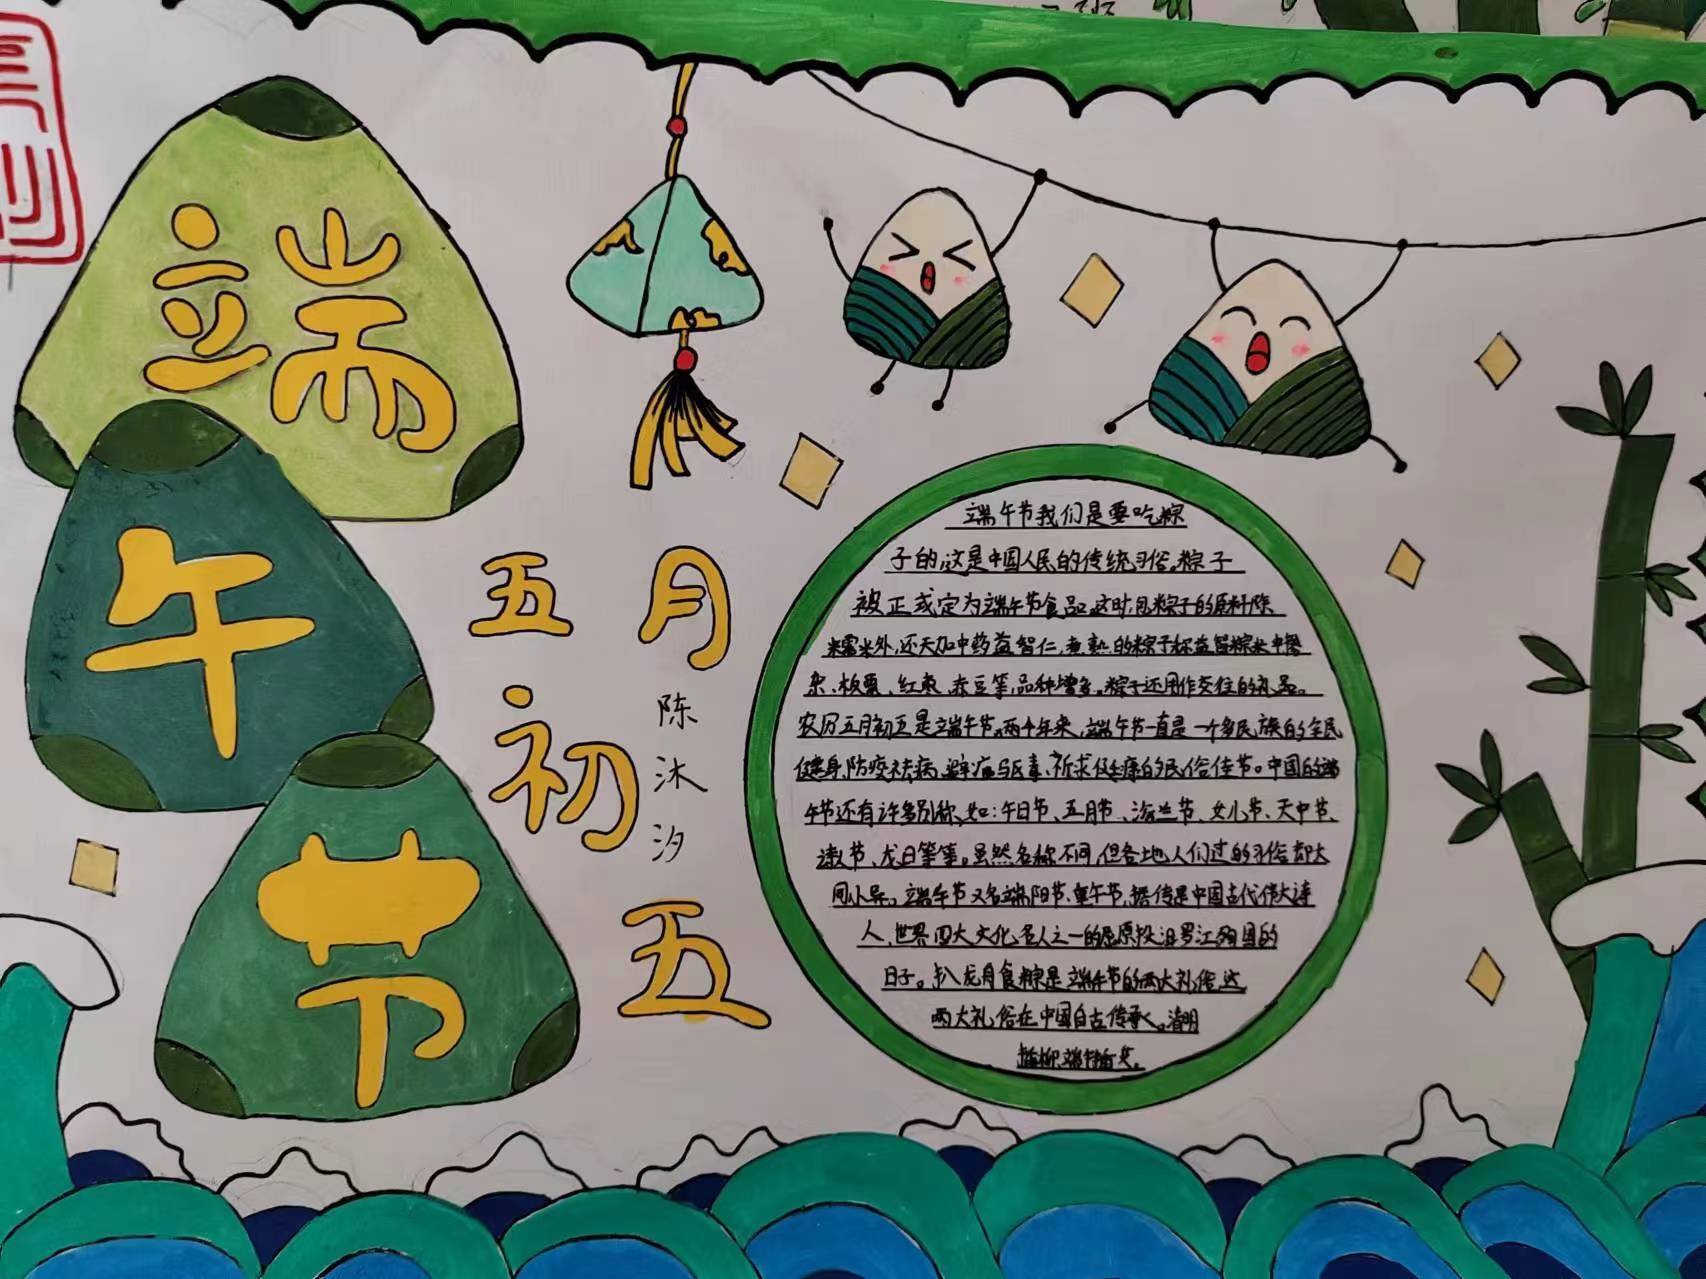 二班
端
午
节
五月
初
五
陈沐汐
端午节我们是要吃粽
子的,这是中国人民的传统习俗。粽子
被正式定为端午节食品。这时,包粽子的原料除
糯米外,还添加中药益智仁,煮熟的粽子称益智粽米中掺
杂、板栗、红枣、赤豆等,品种增多。粽子还用作交往的礼品。
农历五月初五是端午节。两千年来,端午节一直是一个多民族的全民
健身、防疫祛病、避瘟驱毒、祈求健康的民俗佳节。中国的端
午节还有许多别称、如:午日节、五月节、浴兰节、女儿节、天中节、
诗人节、龙日等等。虽然名称不同,但各地人们过的习俗却大
同小异。端午节又名端阳节、重午节,据传是中国古代伟大诗
人、世界四大文化名人之一的屈原投汨罗江殉国的
日子。扒龙舟食粽是端午节的两大礼俗,这
两大礼俗在中国自古传承。清明
插柳,端午插艾。